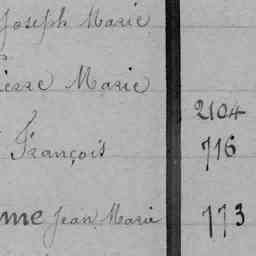 Joseph Marie
Pierre Marie
2104
François 716
Jean Marie 773